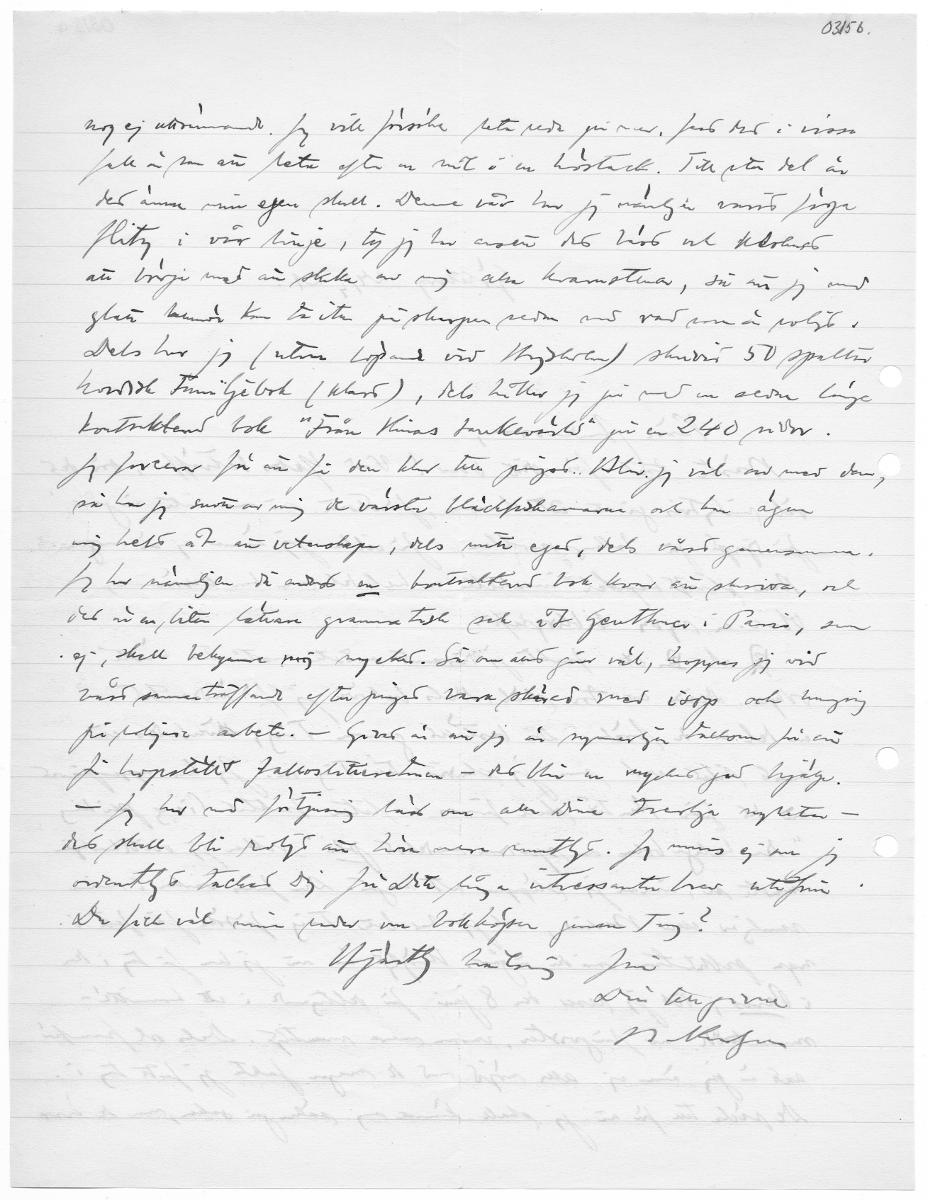 0315b.
nog ej uttömmande. Jag vill försöka leta reda på mer, fast det i vissa
fall är som att leta efter en nål i en höstack. Till stor del är
det ännu min egen skull. Denna vår har jag nämligen varit föga
flitig i vår linje, ty jag har ansett det bäst och klokast
att börja med att skaka av mig alla kvarnstenar, så att jag med
glatt humör kan ta itu på skarpen sedan med vad som är roligt.
Dels har jag (utom löpande vid Högskolan) skrivit 50 spalter
Nordisk Familjebok (klart), dels håller jag på med en sedan länge
kontrakterad bok "Från Kinas tankevärld" på en 240 sidor.
Jag forcerar för att få den klar till pingst. Blir jag väl av med den,
så har jag snott av mig de värsta bläckfiskarmarna och kan ägna
mig helt åt vetenskapen, dels mitt eget, dels vårt gemensamma.
Jag har nämligen då endast en kontrakterad bok kvar att skriva, och
det är en liten lättare grammatisk sak åt Geuthner i Paris, som
ej skall bekymra mig mycket. Så om allt går väl, hoppas jag vid
vårt sammanträffande efter pingst vara skurad med isop och hungrig
på roligare arbete. — Givet är att jag är synnerligen tacksam för att
få hopställt  — det blir en mycket god hjälp.
— Jag har med förtjusning läst om alla Dina trevliga nyheter —
det skall bli roligt att höra mera muntligt. Jag minns ej om jag
ordentligt tackat Dig för Ditt långa intressanta brev utifrån.
Du fick väl mina rader om bokköpen genom Ting?
Hjärtlig hälsning från
Din tillgivne
B. Karlgren